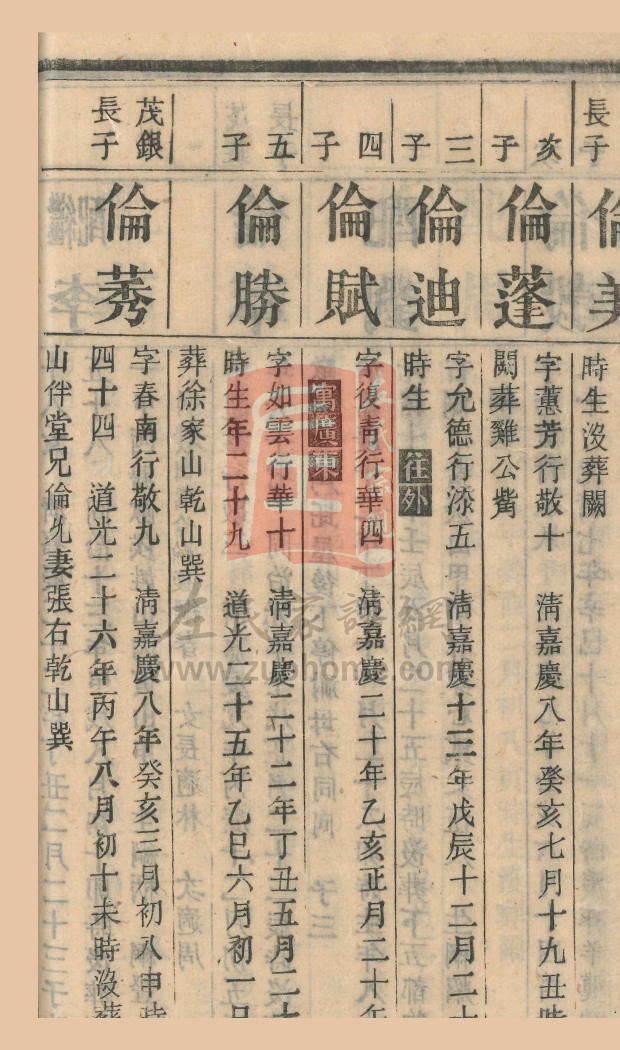 長子
倫美
時生沒葬闕
亥子
倫蓬
字蕙芳行敬十 清嘉慶八年癸亥七月十九丑時
闕葬雞公嘴
三子
倫迪
字允德行漆五 清嘉慶十三年戊辰十二月二十
時生 往外
四子
倫賦
字復青行華四 清嘉慶二十年乙亥正月二十
寓廣東
五子
倫勝
字如雲行華十 清嘉慶二十二年丁丑五月二十
時生年二十九 道光二十五年乙巳六月初一日
葬徐家山乾山巽
茂銀長子
倫莠
字春南行敬九 清嘉慶八年癸亥三月初八申時
四十四 道光二十六年丙午八月初十未時沒葬
山伴堂兄倫先妻張右乾山巽
左氏家譜網
www.zuohome.com